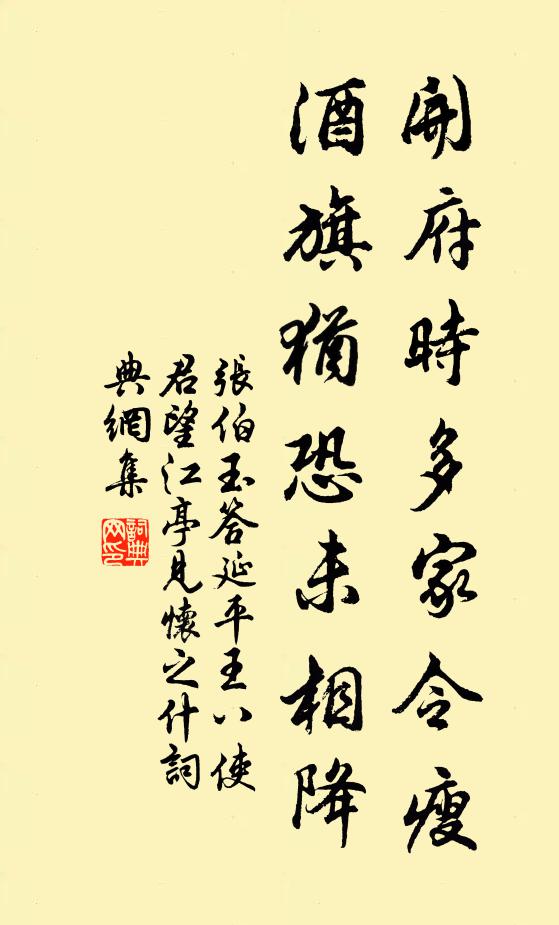 開府時多家令瘦
酒旗猶恐未相降
張伯玉答延平王八使
君望江亭見懷之什詞
典網集
詞典
网印